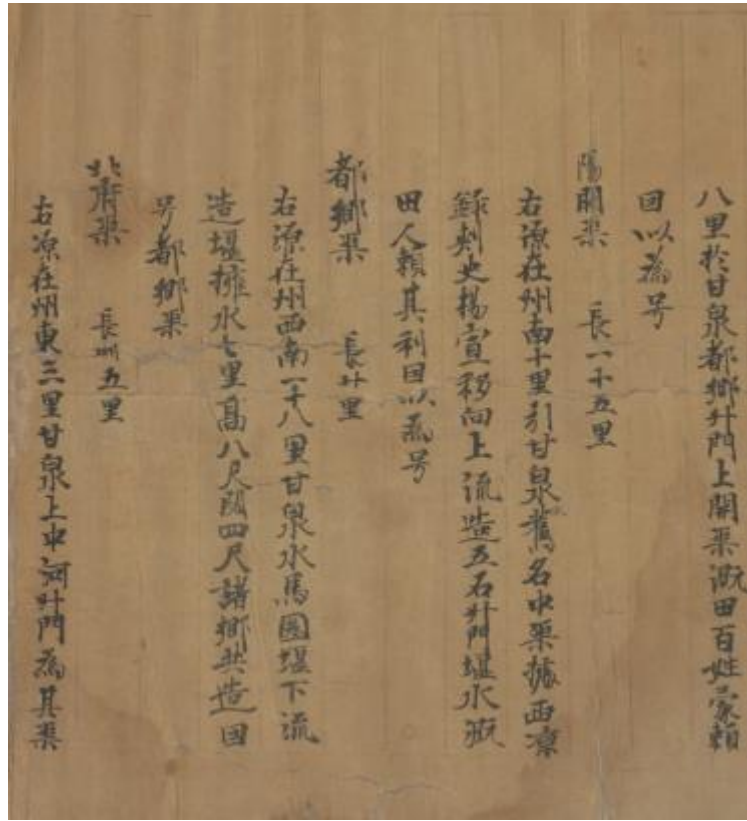 八里於甘泉都鄉斗門上開渠溉田百姓蒙賴
因以為号
陽開渠 長一十五里
右源在州南十里引甘泉舊名中渠據西涼
錄刺史楊宣移向上流造五石斗門堰水溉
田人賴其利因以為号
都鄉渠 長廿里
右源在州西南一十八里甘泉水馬圈堰下流
造堰擁水七里高八尺闊四尺諸鄉共造因
号都鄉渠
北府渠 長卌五里
右源在州東三里甘泉上中河斗門為其渠